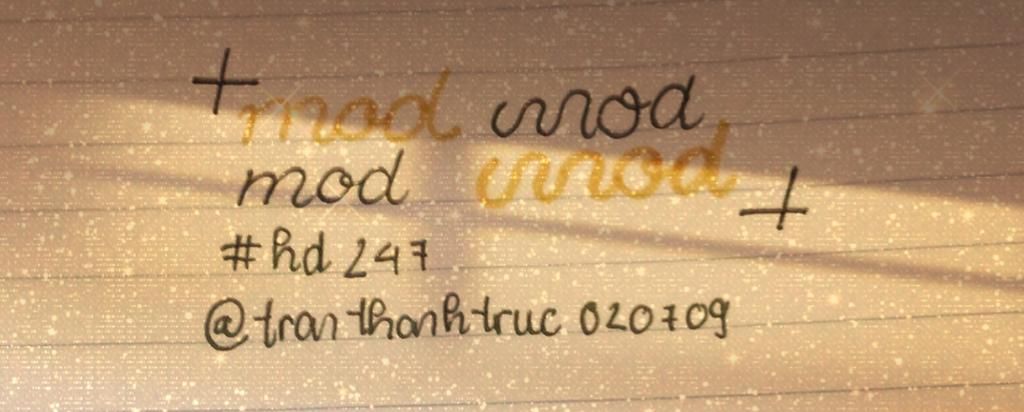 mod mod
mod mod
#hd 247
@tranthanhtruc 020709